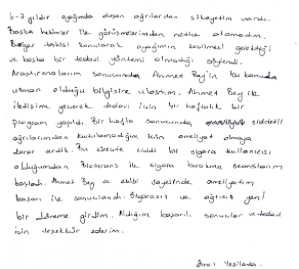 6-7 yıldır ayağımda oluşan ağrılardan şikayetim vardı.
Başka hekimler ile görüşmelerimden netice alamadım.
Buerger teşhisi konularak ayağımın kesilmesi gerektiği
ve başka bir tedavi yöntemi olmadığı söylendi.
Araştırmalarım sonucunda Ahmet Bey'in bu konuda
uzman olduğu bilgisine ulaştım. Ahmet Bey ile
iletişime geçerek tedavi için bir haftalık bir
program yapıldı. Bir hafta sonucunda şiddetli
ağrılarımdan kurtulamadığım için ameliyat olmaya
karar verdik. Bu süreçte ciddi bir sigara kullanıcısı
olduğumdan Biorezonans ile sigara bırakma seanslarım
başladı. Ahmet Bey ve ekibi sayesinde ameliyatım
başarı ile sonuçlandı. Sigarasız ve ağrısız yeni
bir döneme girdim. Aldığım başarılı sonuçlar ve tedavi
için teşekkür ederim.